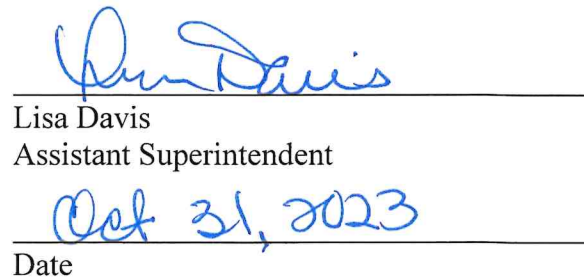 Davis
Lisa Davis
Assistant Superintendent
Oct 31, 2023
Date